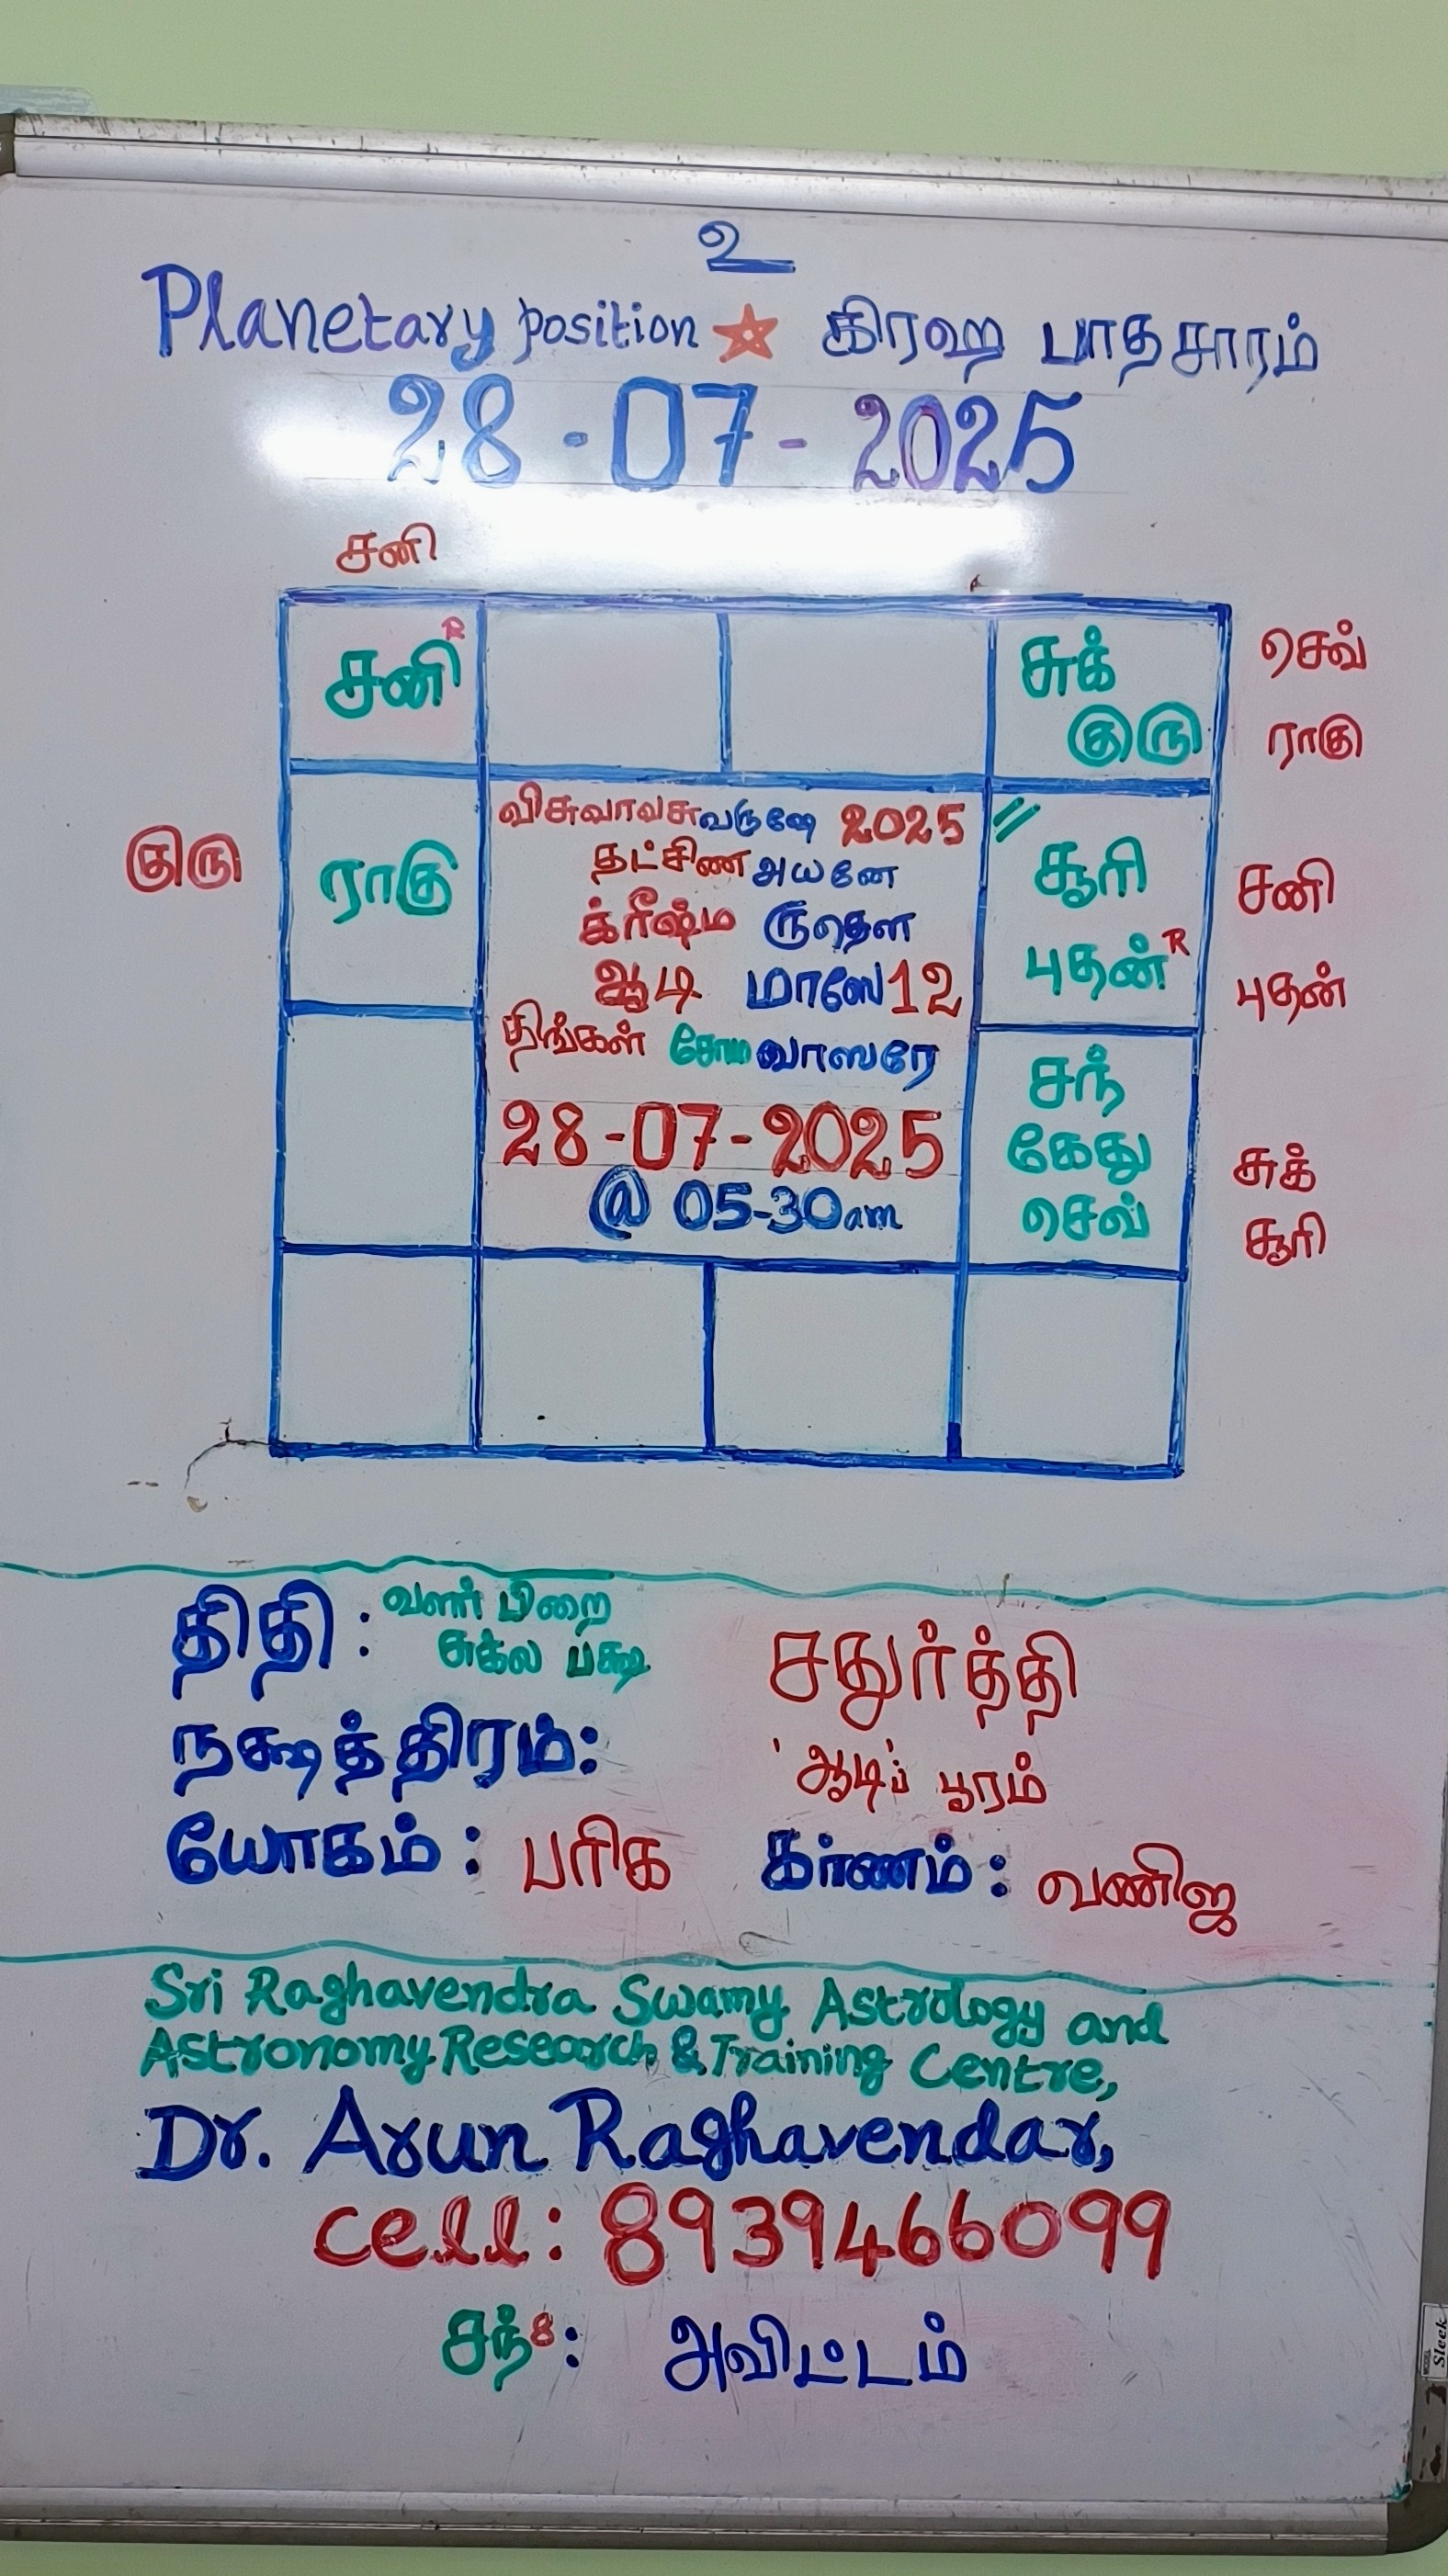 உ
Planetary position ☆ கிரஹ பாதசாரம்
28-07-2025
சனி
சனி R
சுக்
குரு
செவ்
ராகு
குரு
ராகு
விசுவாவசுவருஷே 2025
தட்சிண அயனே
க்ரீஷ்ம ருதௌ
ஆடி மாஸே 12
திங்கள் சோம வாஸரே
28-07-2025
@ 05-30am
சூரி
புதன் R
சனி
புதன்
சந்
கேது
செவ்
சுக்
சூரி
திதி: வளர் பிறை
சுக்ல பக்ஷ சதுர்த்தி
நக்ஷத்திரம்: 'ஆடிப்' பூரம்
யோகம்: பரிக கர்ணம்: வணிஜ
Sri Raghavendra Swamy Astrology and
Astronomy Research & Training Centre,
Dr. Arun Raghavendar,
cell: 8939466099
சந் 8: அவிட்டம்
Sleek